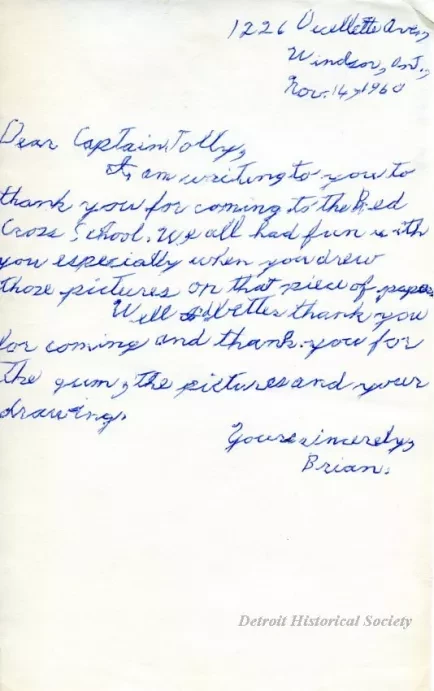 1226 Ouellette Ave.,
Windsor, Ont.,
Nov. 14, 1960
Dear Captain Jolly,
I am writing to you to
thank you for coming to the Red
Cross School. We all had fun with
you especially when you drew
those pictures on that piece of paper.
Well I better thank you
for coming and thank-you for
the gum, the pictures and your
drawing.
Yours sincerely,
Brian.
Detroit Historical Society